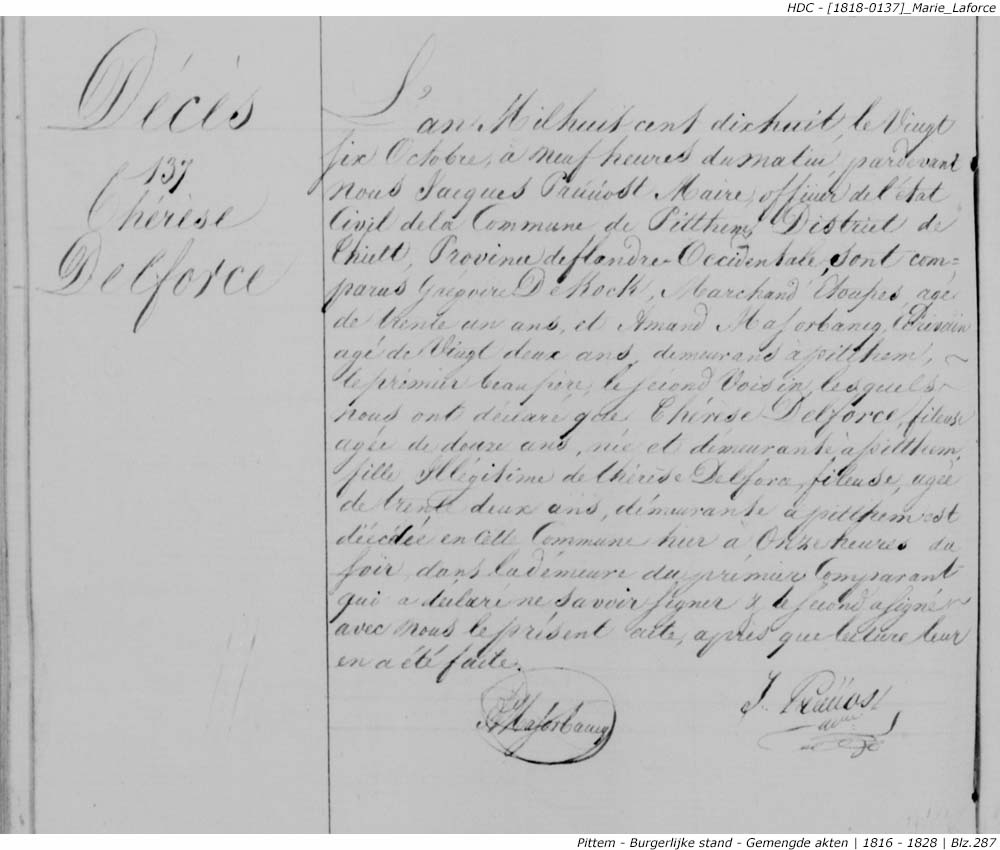 HDC - [1818-0137]_Marie_Laforce
Décès
137
Thérèse
Delforce
L'an Milhuit cent dixhuit, le Vingt
six Octobre, à neuf heures du matin, pardevant
nous Jacques Prévost Maire, officier de l'état
Civil dela Commune de Pitthem, District de
Thielt, Province deflandre-Occidentale, sont com=
parus Grégoire DeKock, Marchand d'Etoupes, agé
de trente un ans, et Amand Maforbancq, Ecrivain
agé de Vingt deux ans, demeurans à pitthem,
le prémier beaupère, le sécond Voisin, lesquels
nous ont déclaré que Thérèse Delforce, fileuse
agée de douze ans, née et démeurante à pitthem,
fille illégitime de thérèse Delforce, fileuse, agée
de trente deux ans, démeurante à pitthem est
décédée en cette Commune hier à Onze heures du
soir, dans la démeure du prémier Comparant
qui a déclaré ne savoir signer & le sécond a signé
avec nous le présent acte, après que lecture leur
en a été faite.
Maforbancq
J. Prévost
Pittem - Burgerlijke stand - Gemengde akten | 1816 - 1828 | Blz.287